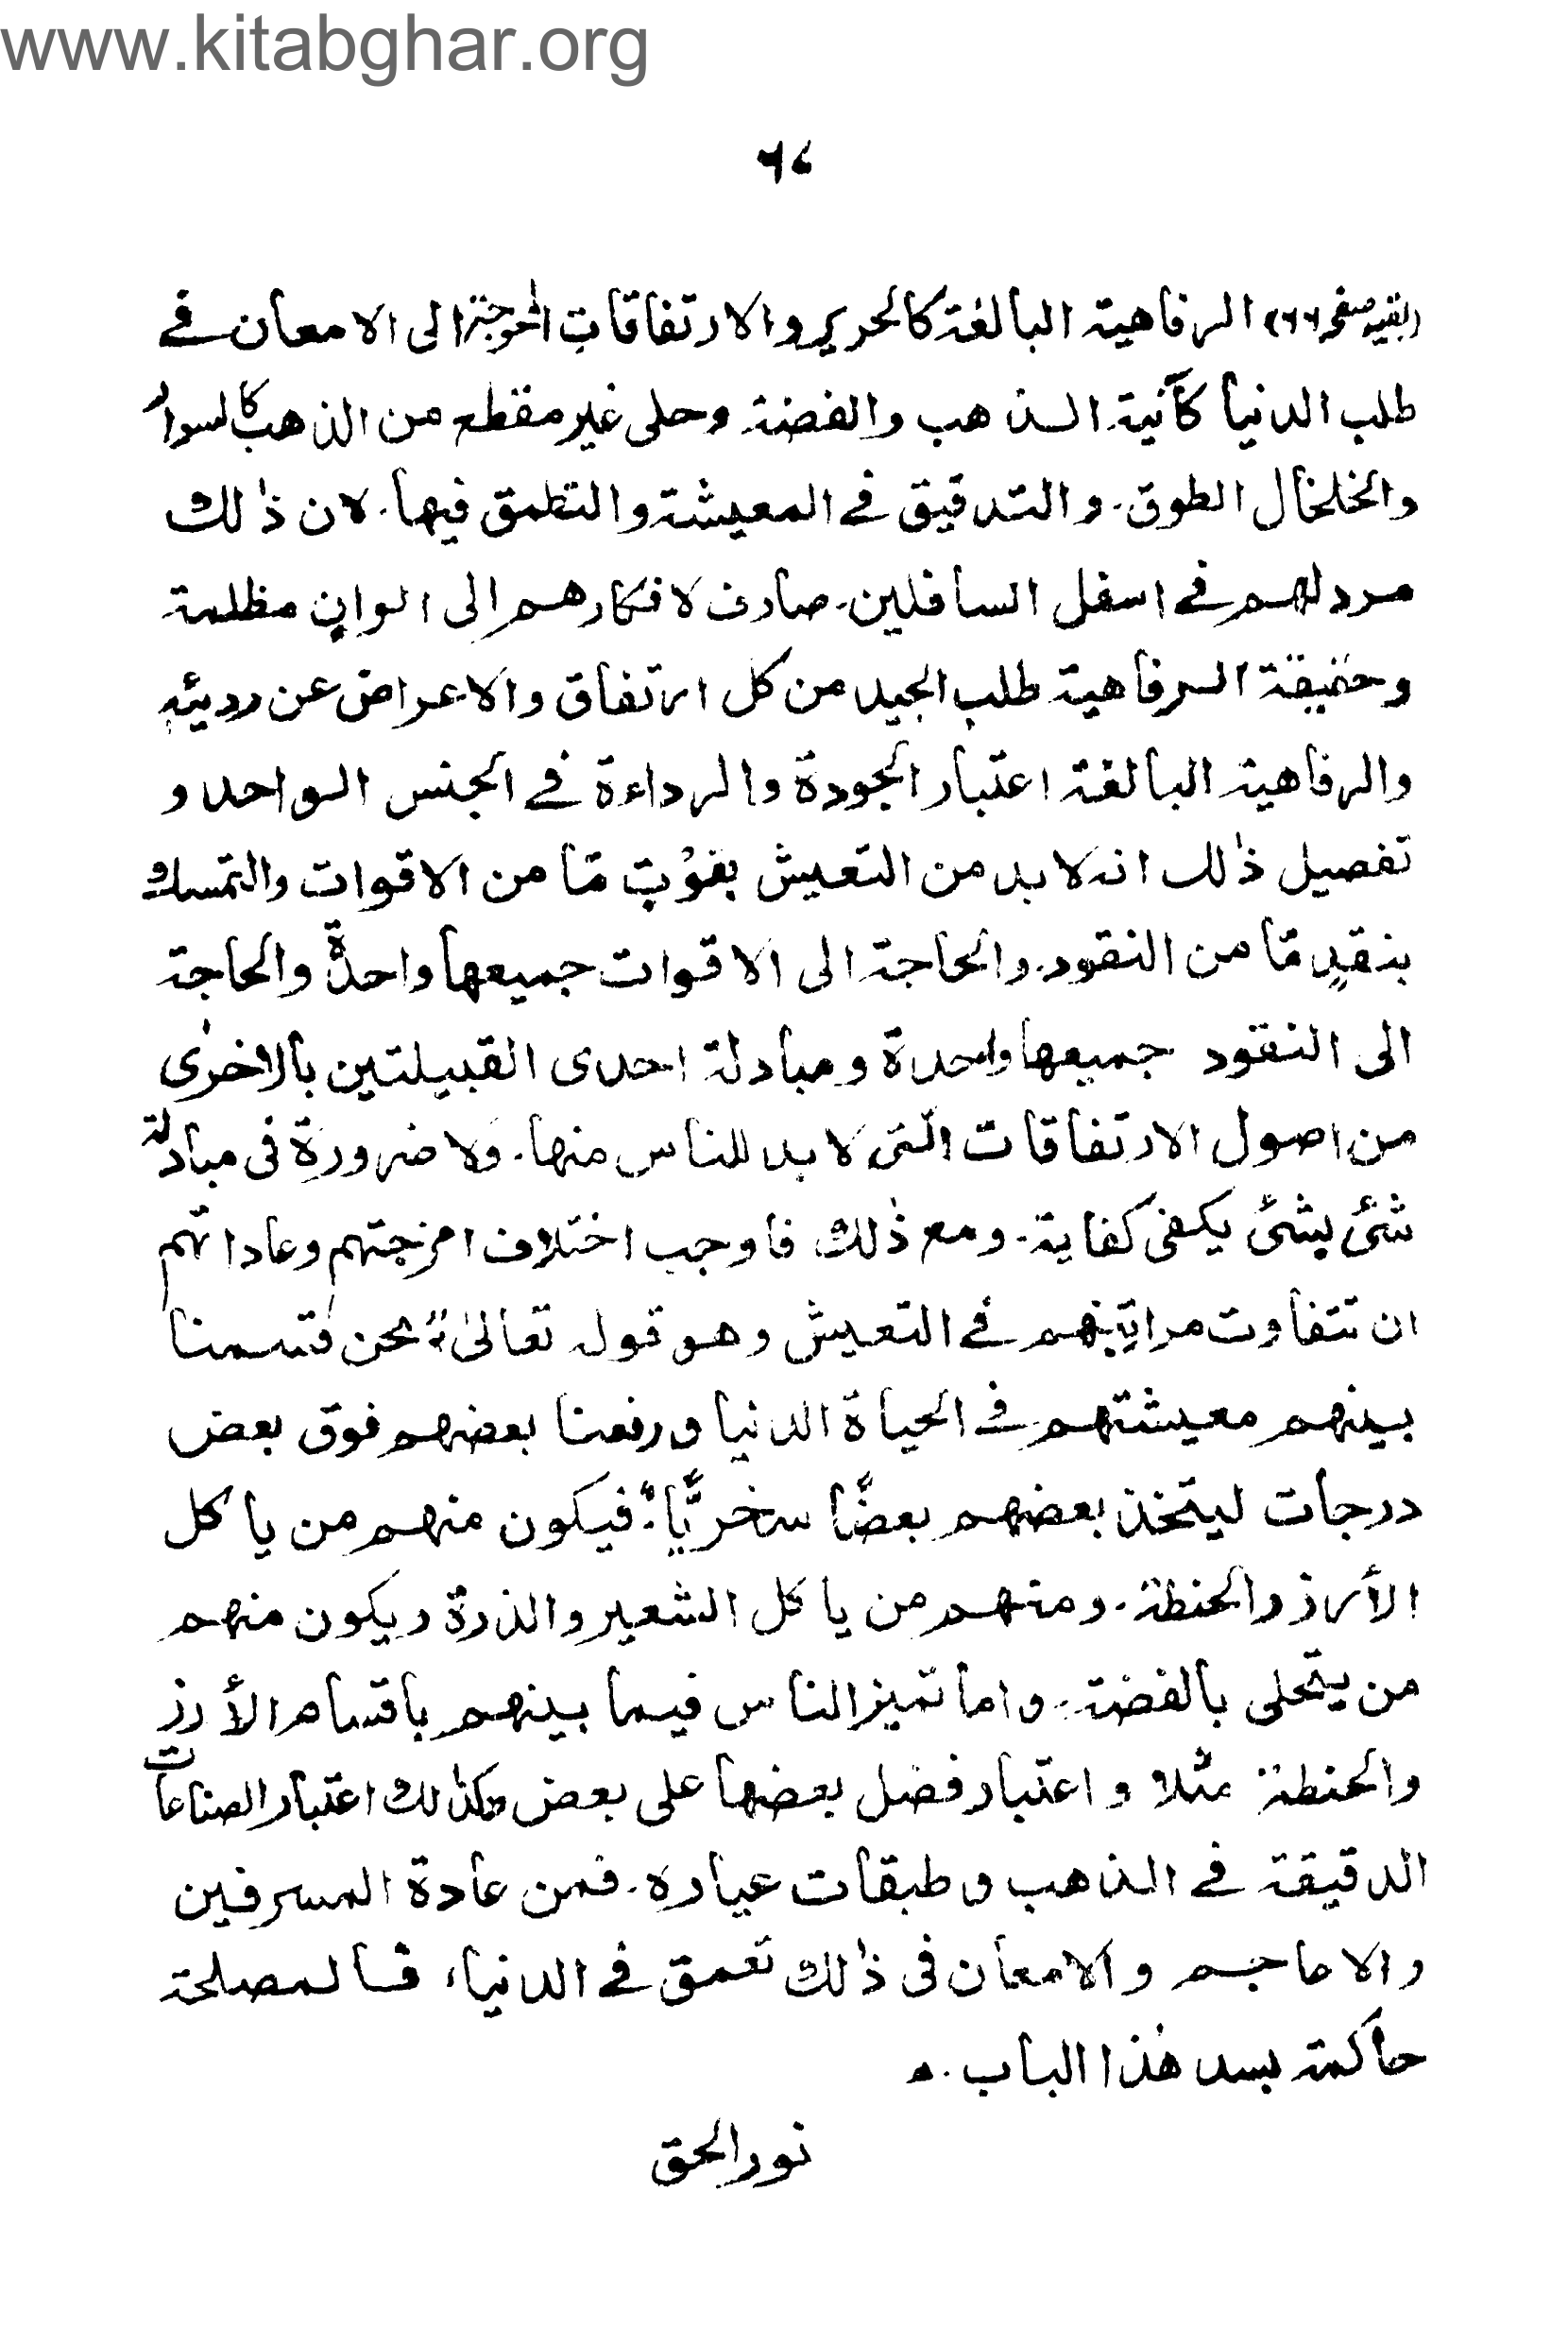 www.kitabghar.org
۶۷
(بقیہ صفحہ ۶۶) الرفاهية البالغة كالحرير والارتفاقات المحوجة الى الامعان في
طلب الدنيا كآنية الذهب والفضة وحلى غير مقطع من الذهب كالسوار
والخلخال الطوق۔ والتدقيق في المعيشة والتعمق فيها۔ لان ذٰلك
مرد لهم في اسفل السافلين۔ صارف لافكارهم الى الوانٍ مظلمة
وحقيقة الرفاهية طلب الجيد من كل ارتفاق والاعراض عن رديئه
والرفاهية البالغة اعتبار الجودة والرداءة في الجنس الواحد و
تفصيل ذٰلك انه لا بد من التعيش بقوْتٍ مّا من الاقوات والتمسك
بنقدٍ مّا من النقود۔ والحاجة الى الاقوات جميعها واحدةٌ والحاجة
الى النقود جميعها واحدة ومبادلة احدى القبيلتين بالاخرٰى
من اصول الارتفاقات التى لا بد للناس منها۔ ولا ضرورة فى مبادلة
شئ بشئ يكفى كفاية۔ ومع ذٰلك فاوجب اختلاف امزجتهم وعاداتهم
ان تتفاوت مراتبهم في التعيش وهو قوله تعالىٰ "نحن قسمنا
بينهم معيشتهم في الحياة الدنيا ورفعنا بعضهم فوق بعض
درجات ليتخذ بعضهم بعضًا سخريًّا" فيكون منهم من ياكل
الأرز والحنطة۔ ومنهم من ياكل الشعير والذرة ويكون منهم
من يتحلى بالفضة۔ واما تميز الناس فيما بينهم باقسام الأرز
والحنطة مثلا واعتبار فضل بعضها على بعض وكذٰلك اعتبار الصناعات
الدقيقة في الذهب وطبقات عياره۔ فمن عادة المسرفين
والاعاجم والامعان فى ذٰلك تعمق في الدنيا، فالمصلحة
حاكمة بسد هٰذا الباب۔
نور الحق